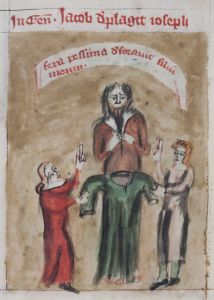 In Gen. Jacob dplagit ioseph
fera pessima deuorauit filiu
meum.